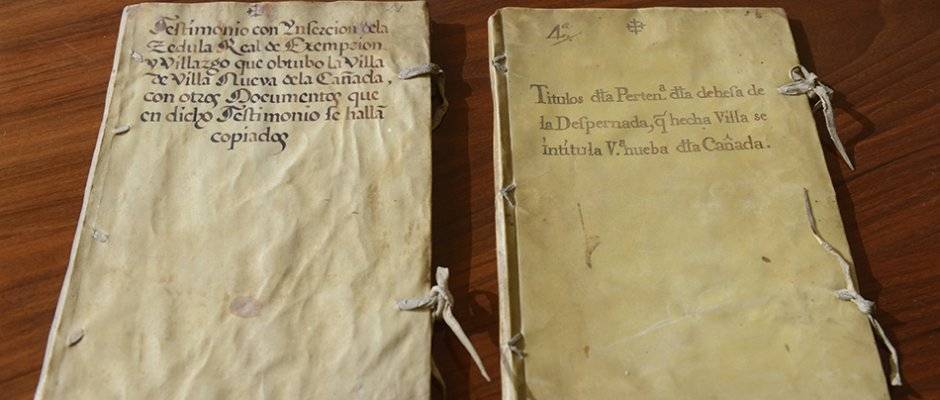 Testimonio con Ynsercion dela
Zedula Real de Exempcion
y Villazgo que obtubo la Villa
de Villa Nueva dela Cañada,
con otros Documentos que
en dicho Testimonio se hallã
copiados
4ª
Titulos dla Pertenª. dla dehesa de
la Despernada, q̃ hecha Villa se
intitula Vª nueba dla Cañada.